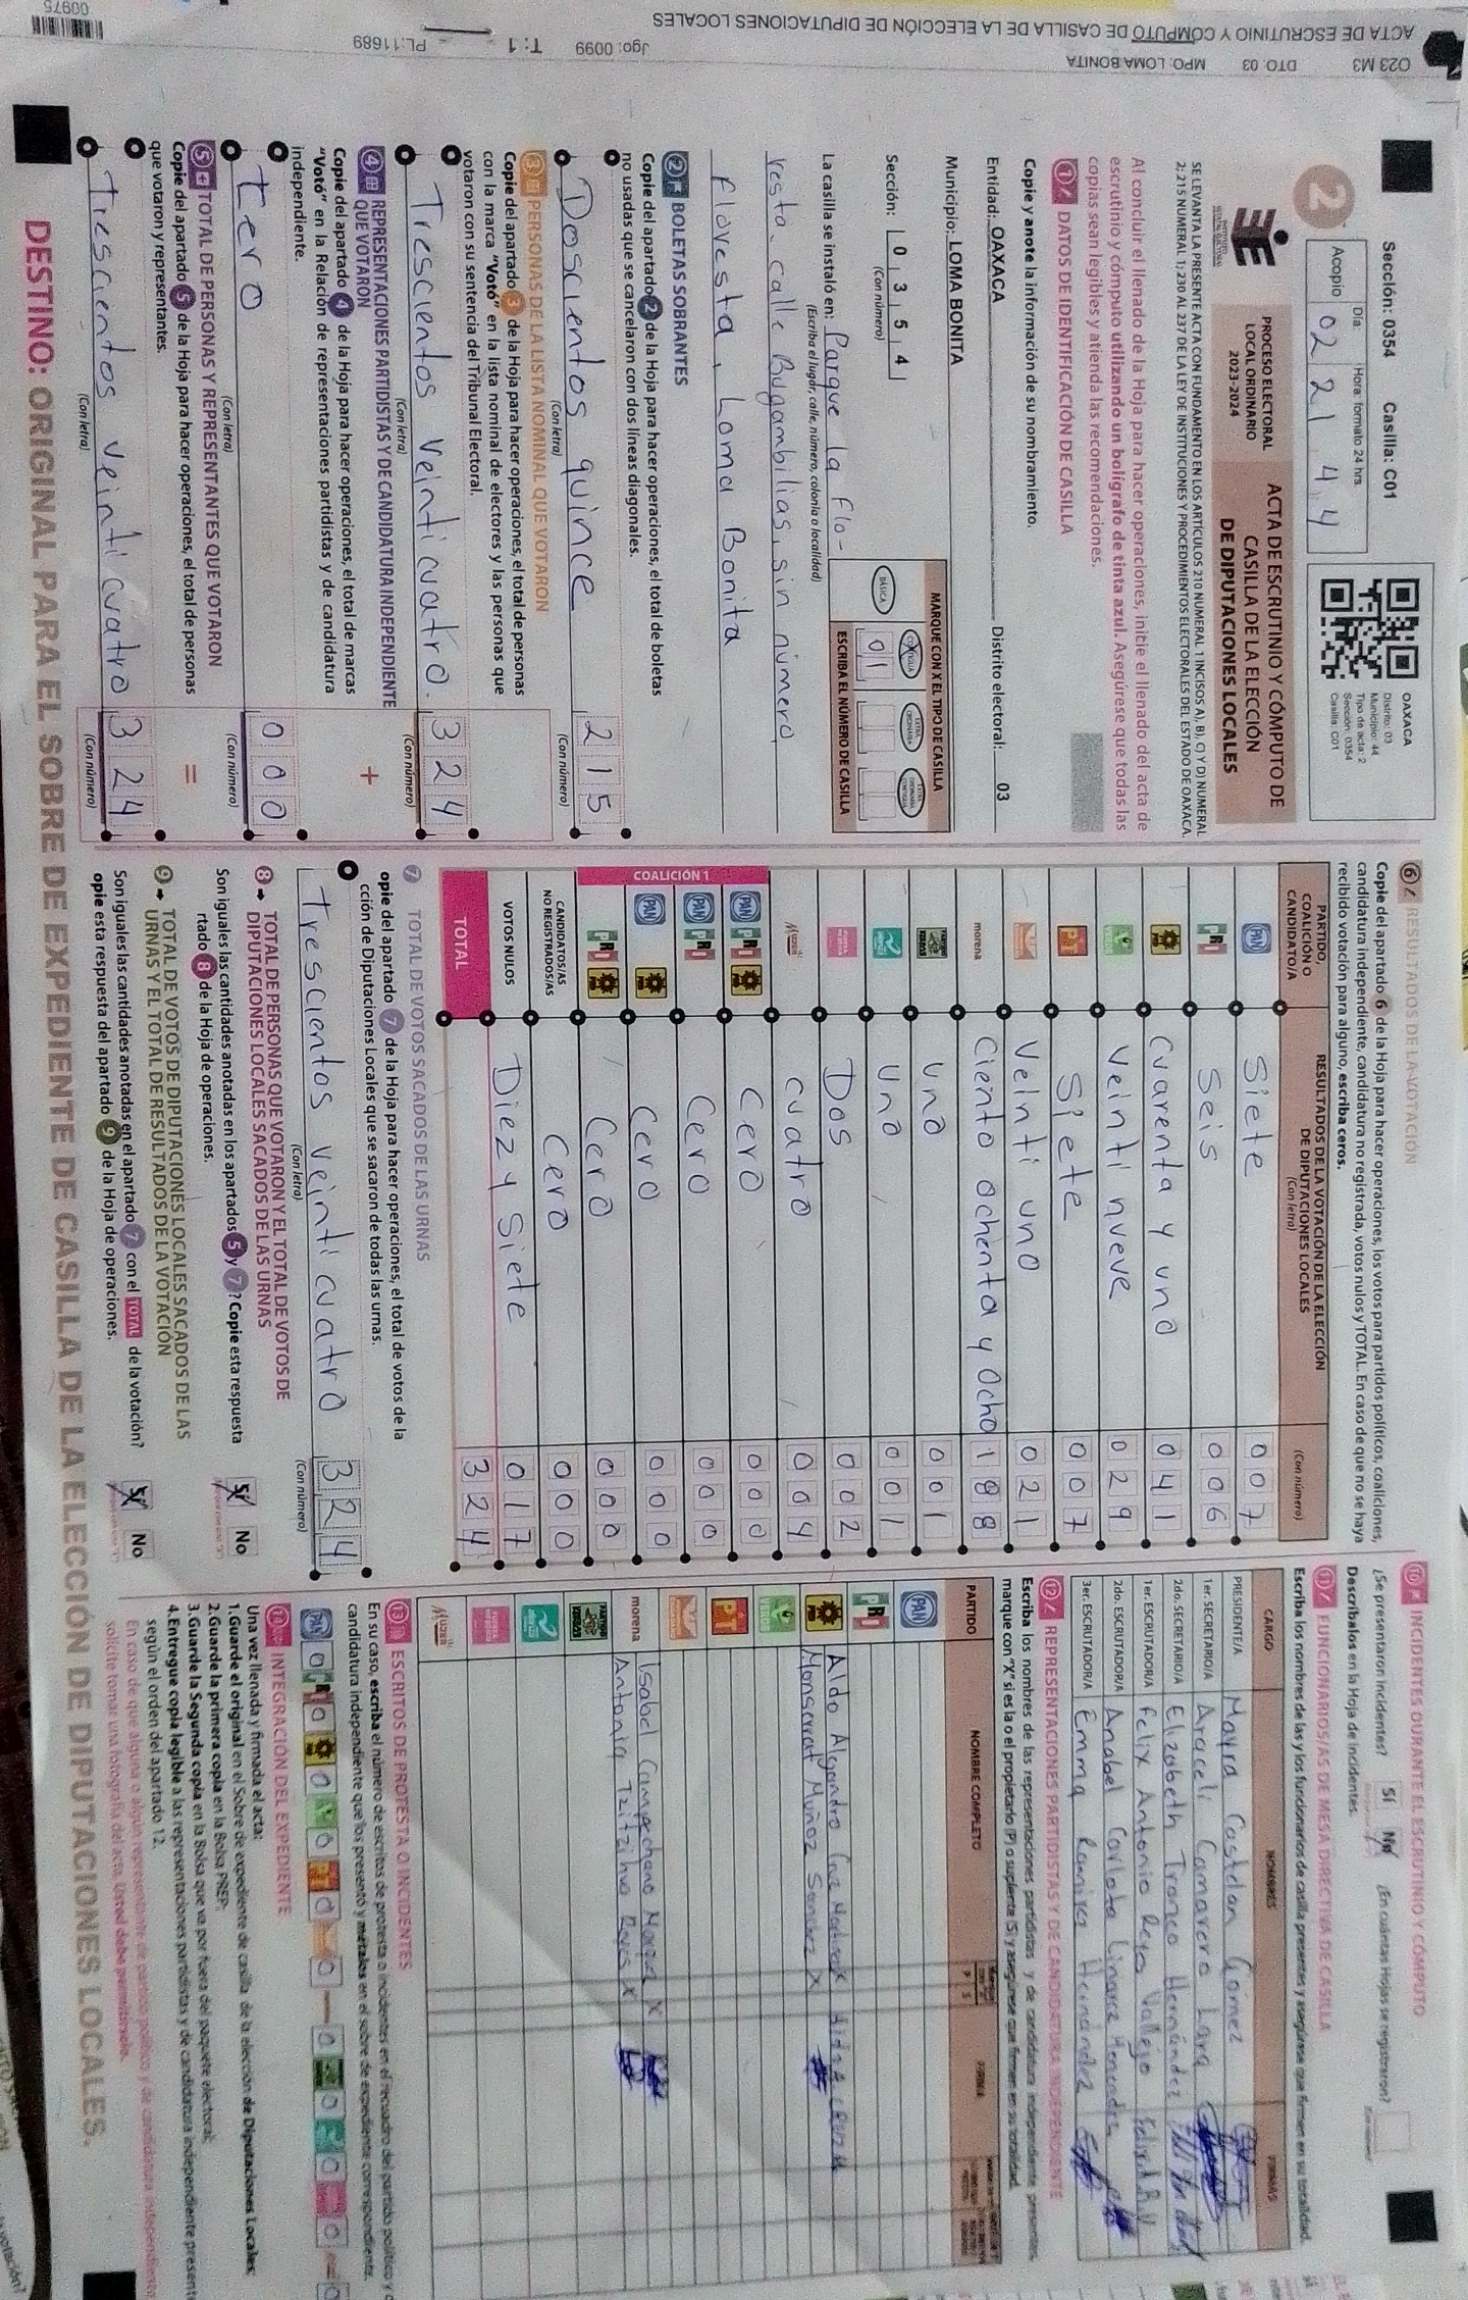 Sección: 0354 Casilla: C01
2
Acopio
Día: Hora: formato 24 hrs.
02 21 4 4
OAXACA
Distrito: 03
Municipio: 44
Tipo de acta: 2
Sección: 0354
Casilla: C01
PROCESO ELECTORAL
LOCAL ORDINARIO
2023-2024
ACTA DE ESCRUTINIO Y CÓMPUTO DE
CASILLA DE LA ELECCIÓN
DE DIPUTACIONES LOCALES
SE LEVANTA LA PRESENTE ACTA CON FUNDAMENTO EN LOS ARTÍCULOS 210 NUMERAL 1 INCISOS A), B), C) Y D) NUMERAL
2; 215 NUMERAL 1; 230 AL 237 DE LA LEY DE INSTITUCIONES Y PROCEDIMIENTOS ELECTORALES DEL ESTADO DE OAXACA.
Al concluir el llenado de la Hoja para hacer operaciones, inicie el llenado del acta de
escrutinio y cómputo utilizando un bolígrafo de tinta azul. Asegúrese que todas las
copias sean legibles y atienda las recomendaciones.
1 DATOS DE IDENTIFICACIÓN DE CASILLA
Copie y anote la información de su nombramiento.
Entidad: OAXACA Distrito electoral: 03
Municipio: LOMA BONITA
Sección: 0 3 5 4
(Con número)
MARQUE CON X EL TIPO DE CASILLA
BÁSICA
01
ESCRIBA EL NÚMERO DE CASILLA
La casilla se instaló en: Parque la Flo-
(Escriba el lugar, calle, número, colonia o localidad)
resta, calle Bugambilias, sin número
Floresta, Loma Bonita
2 BOLETAS SOBRANTES
Copie del apartado 2 de la Hoja para hacer operaciones, el total de boletas
no usadas que se cancelaron con dos líneas diagonales.
Doscientos quince 215
(Con letra) (Con número)
3 PERSONAS DE LA LISTA NOMINAL QUE VOTARON
Copie del apartado 3 de la Hoja para hacer operaciones, el total de personas
con la marca "Votó" en la lista nominal de electores y las personas que
votaron con su sentencia del Tribunal Electoral.
Trescientos veinticuatro. 324
(Con letra) (Con número)
4 REPRESENTACIONES PARTIDISTAS Y DE CANDIDATURA INDEPENDIENTE
QUE VOTARON
Copie del apartado 4 de la Hoja para hacer operaciones, el total de marcas
"Votó" en la Relación de representaciones partidistas y de candidatura
independiente.
+
cero 000
(Con letra) (Con número)
5 TOTAL DE PERSONAS Y REPRESENTANTES QUE VOTARON
Copie del apartado 5 de la Hoja para hacer operaciones, el total de personas
que votaron y representantes.
=
Trescientos veinticuatro 324
(Con letra) (Con número)
6 RESULTADOS DE LA VOTACIÓN
Copie del apartado 6 de la Hoja para hacer operaciones, los votos para partidos políticos, coaliciones,
candidatura independiente, candidatura no registrada, votos nulos y TOTAL. En caso de que no se haya
recibido votación para alguno, escriba ceros.
PARTIDO,
COALICIÓN O
CANDIDATO/A
RESULTADOS DE LA VOTACIÓN DE LA ELECCIÓN
DE DIPUTACIONES LOCALES
(Con letra) (Con número)
PAN Siete 007
PRI Seis 006
PRD Cuarenta y uno 041
VERDE Veinti nueve 029
PT Siete 007
Veinti uno 021
morena Ciento ochenta y ocho 188
uno 001
una 001
Dos 002
MUJER cuatro 004
COALICIÓN 1
PAN PRI PRD Cero 000
PAN PRI Cero 000
PAN PRD Cero 000
PRI PRD Cero 000
CANDIDATOS/AS
NO REGISTRADOS/AS Cero 000
VOTOS NULOS Diez y siete 017
TOTAL 324
7 TOTAL DE VOTOS SACADOS DE LAS URNAS
opie del apartado 7 de la Hoja para hacer operaciones, el total de votos de la
cción de Diputaciones Locales que se sacaron de todas las urnas.
Trescientos veinti cuatro 324
(Con letra) (Con número)
8 TOTAL DE PERSONAS QUE VOTARON Y EL TOTAL DE VOTOS DE
DIPUTACIONES LOCALES SACADOS DE LAS URNAS
Son iguales las cantidades anotadas en los apartados 5 y 7? Copie esta respuesta
rtado 8 de la Hoja de operaciones.
Sí No
9 TOTAL DE VOTOS DE DIPUTACIONES LOCALES SACADOS DE LAS
URNAS Y EL TOTAL DE RESULTADOS DE LA VOTACIÓN
Son iguales las cantidades anotadas en el apartado 7 con el TOTAL de la votación?
opie esta respuesta del apartado 9 de la Hoja de operaciones.
Sí No
10 INCIDENTES DURANTE EL ESCRUTINIO Y CÓMPUTO
¿Se presentaron incidentes? Sí No ¿En cuántas Hojas se registraron?
Descríbalos en la Hoja de Incidentes.
11 FUNCIONARIOS/AS DE MESA DIRECTIVA DE CASILLA
Escriba los nombres de las y los funcionarios de casilla presentes y asegúrese que firmen en su totalidad.
CARGO NOMBRES FIRMAS
PRESIDENTE/A Mayra Castelan Gómez
1er. SECRETARIO/A Araceli Camarero Lara
2do. SECRETARIO/A Elizabeth Tronco Hernández
1er. ESCRUTADOR/A Felix Antonio Reyes Vallejo
2do. ESCRUTADOR/A Anabel Carlota Linares
3er. ESCRUTADOR/A Emma Ramírez Hernández
12 REPRESENTACIONES PARTIDISTAS Y DE CANDIDATURA INDEPENDIENTE
Escriba los nombres de las representaciones partidistas y de candidatura independiente presentes,
marque con "X" si es la o el propietario (P) o suplente (S) y asegúrese que firmen en su totalidad.
PARTIDO NOMBRE COMPLETO FIRMA
PAN
PRI
PRD Aldo Alejandro Cruz
VERDE Monserrat Muñoz Sánchez X
PT
morena Isabel Campechano X
Antonia Tzitzihua Reyes X
MUJER
13 ESCRITOS DE PROTESTA O INCIDENTES
En su caso, escriba el número de escritos de protesta o incidentes en el recuadro del partido político y
candidatura independiente que los presentó y métalos en el sobre de expediente correspondiente.
INTEGRACIÓN DEL EXPEDIENTE
Una vez llenada y firmada el acta:
1.Guarde el original en el Sobre de expediente de casilla de la elección de Diputaciones Locales;
2.Guarde la primera copia en la Bolsa PREP;
3.Guarde la Segunda copia en la Bolsa que va por fuera del paquete electoral;
4.Entregue copia legible a las representaciones partidistas y de candidatura independiente present
según el orden del apartado 12.
En caso de que alguna o algún representante de partido político y de candidatura independiente
solicite tomar una fotografía del acta, Usted debe permitírselo.
DESTINO: ORIGINAL PARA EL SOBRE DE EXPEDIENTE DE CASILLA DE LA ELECCIÓN DE DIPUTACIONES LOCALES.
O23 M3 DTO: 03 MPO: LOMA BONITA
ACTA DE ESCRUTINIO Y CÓMPUTO DE CASILLA DE LA ELECCIÓN DE DIPUTACIONES LOCALES
Jgo: 0099 T: 1 PL:11689
00975